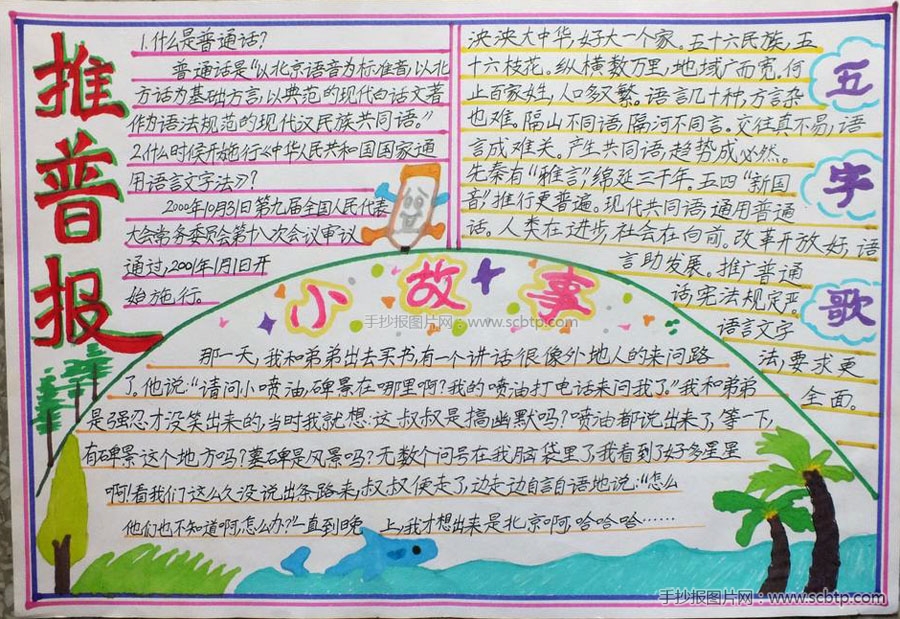 推普报
1.什么是普通话?
普通话是“以北京语音为标准音,以北
方话为基础方言,以典范的现代白话文著
作为语法规范的现代汉民族共同语。”
2.什么时候开施行《中华人民共和国国家通
用语言文字法》?
2000年10月31日第九届全国人民代表
大会常务委员会第十八次会议审议
通过,2001年1月1日开
始施行。
五字歌
泱泱大中华,好大一个家。五十六民族,五
十六枝花。纵横数万里,地域广而宽。何
止百家姓,人口多又繁。语言几十种,方言杂
也难。隔山不同语,隔河不同言。交往真不易,语
言成难关。产生共同语,趋势成必然。
先秦有“雅言”,绵延三千年。五四“新国
音”,推行更普遍。现代共同语,通用普通
话。人类在进步,社会在向前。改革开放好,语
言助发展。推广普通
话,宪法规定严。
语言文字
法,要求更
全面。
小故事
手抄报图片网:www.scbtp.com
那一天,我和弟弟出去买书,有一个讲话很像外地人的来问路
了。他说:“请问小喷油,碑景在哪里啊?我的喷油打电话来问我了。”我和弟弟
是强忍才没笑出来的,当时我就想:这叔叔是搞幽默吗?喷油都说出来了,等一下,
有碑景这个地方吗?墓碑是风景吗?无数个问号在我脑袋里了,我看到了好多星星
啊!看我们这么久没说出条路来,叔叔便走了,边走边自言自语地说:“怎么
他们也不知道啊,怎么办?”一直到晚上,我才想出来是北京啊,哈哈哈……
手抄报图片网:www.scbtp.com